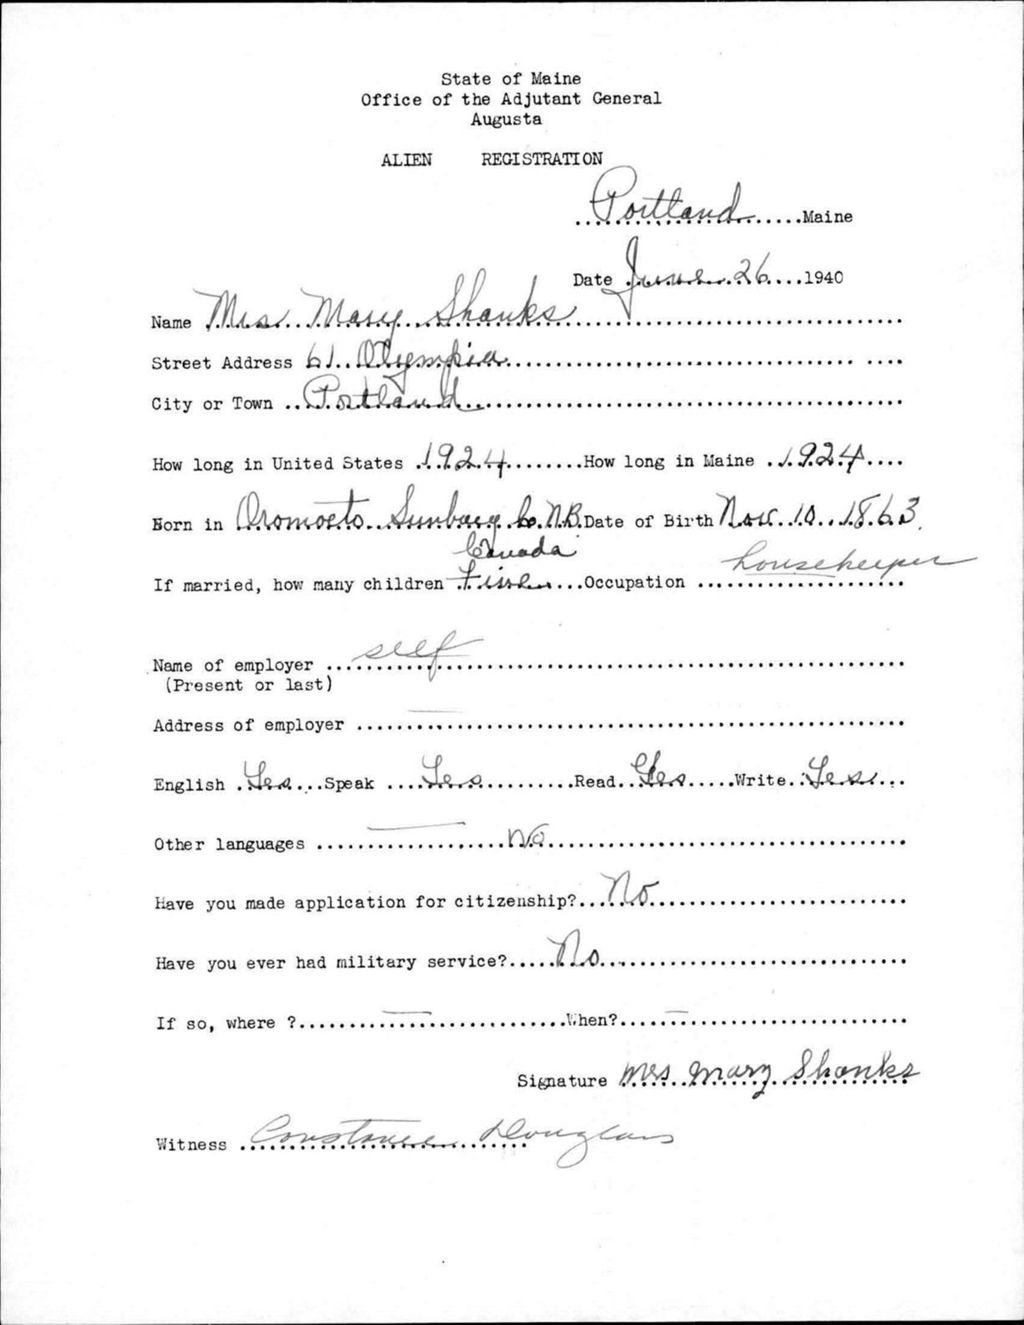 State of Maine
Office of the Adjutant General
Augusta
ALIEN REGISTRATION
Portland Maine
Date June 26 1940
Name Mrs Mary Shanks
Street Address 61 Olympia
City or Town Portland
How long in United States 1924 How long in Maine 1924
Born in Oromocto Sunbury Co. N.B. Date of Birth Nov. 10. 1863.
Canada
If married, how many children Five Occupation housekeeper
Name of employer self
(Present or last)
Address of employer —
English Yes Speak Yes Read Yes Write Yes
Other languages — No
Have you made application for citizenship? No
Have you ever had military service? No
If so, where ? — When? —
Signature Mrs Mary Shanks
Witness Constance Douglass